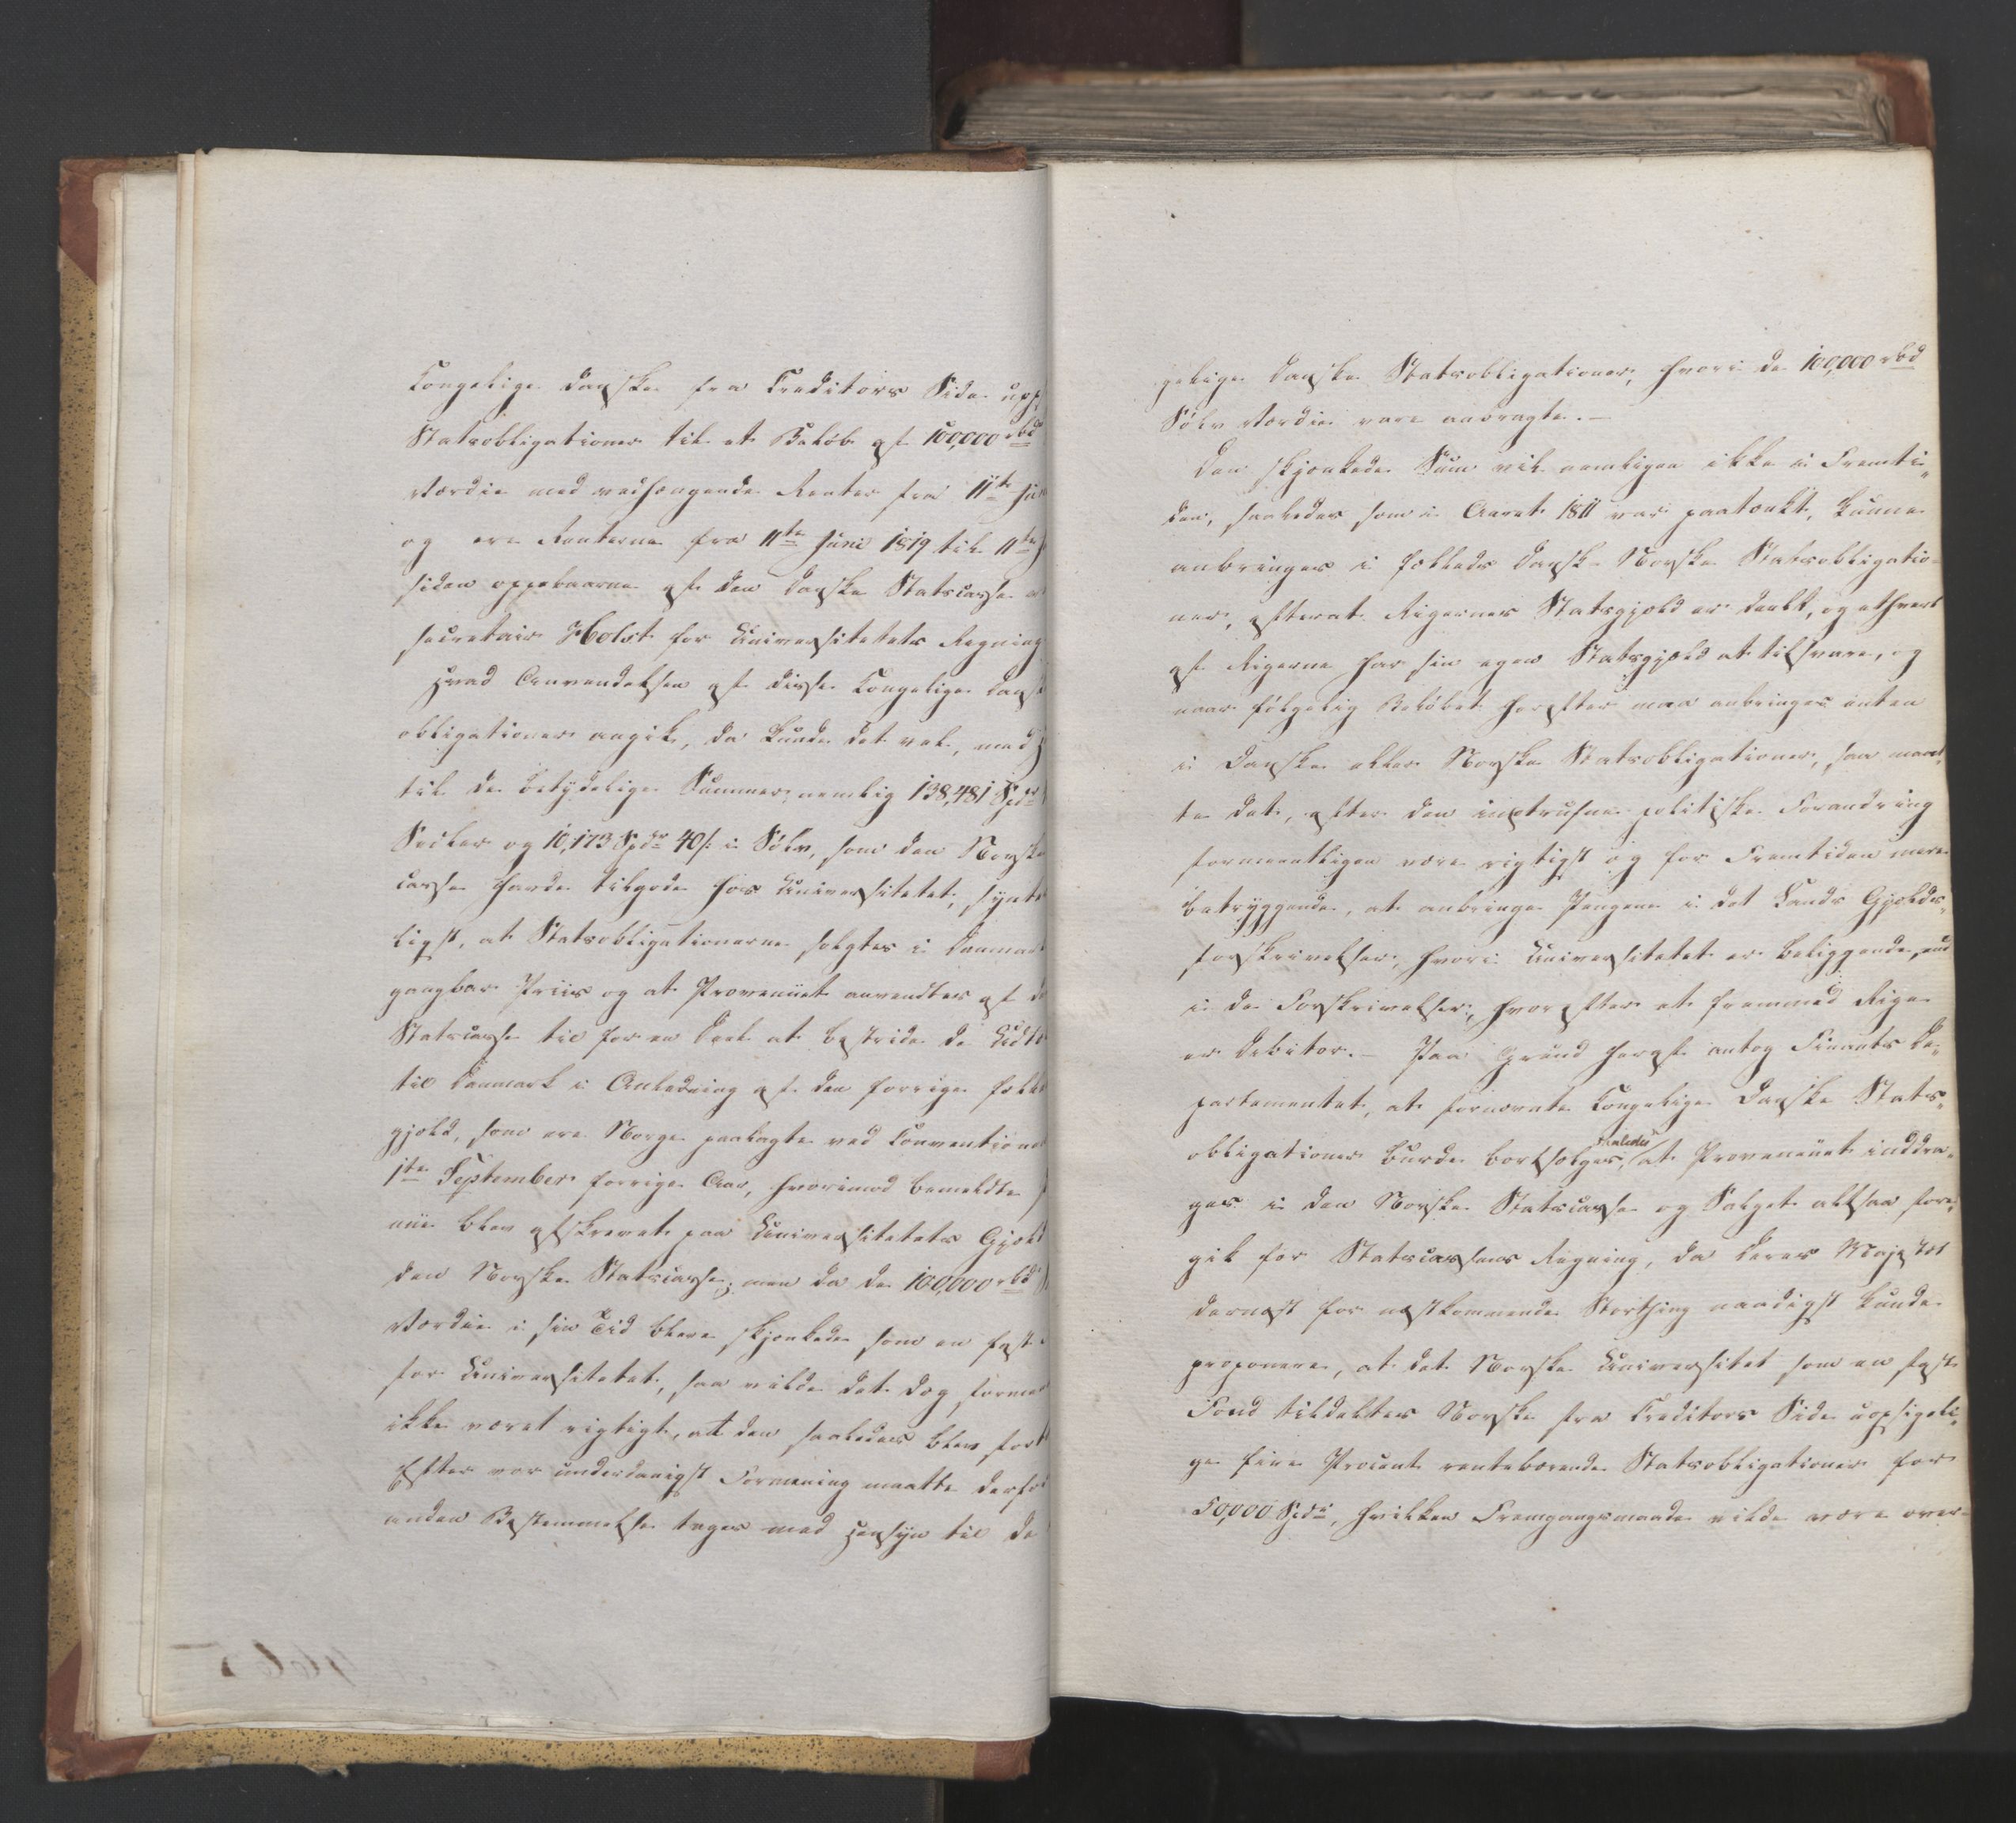 Kongelige danske fra Creditors Side upp
Statsobligationer til et Beløb af 100,000 rbd
Værdie med vedhængende Renter fra 11te Jun
og ere Renterne fra 11te Juni 1819 til 11te J
siden oppebaarne af den danske Statscasse a
secretair Holst for Universitetets Regning
Hvad Anvendelsen af disse Kongelige dansk
obligationer angik, da kunde det vel, med H
til de betydelige Summer, nemlig 138,481 Spdr
Sedler og 10,173 Spdr 40 s. i Sølv, som den Norske
casse havde tilgode hos Universitetet, synte
ligst, at Statsobligationerne solgtes i Danmar
gangbar Priis og at Provenüet anvendtes af de
Statscasse til for en Deel at bestride de Udtæ
til Danmark i Anledning af den forrige fælle
gjæld, som ere Norge paalagte ved Conventione
1te September forrige Aar, hvorimod bemeldte
nüe blev afskrevet paa Universitetets Gjæld
den Norske Statscasse; men da de 100,000 rbd
Værdie i sin Tid bleve skjænkede som en fast
for Universitetet, saa vilde det dog formee
ikke været rigtigt, at den saaledes blev fort
Efter vor underdanigst Formening maatte derfor
anden Bestemmelse tages med Hensyn til de
gelige danske Statsobligationer, hvori de 100,000 rbd
Sølv Værdie vare anbragte. –
Den skjænkede Sum vil nemligen ikke i Fremti-
den, saaledes som i Aaret 1811 var paatænkt, kunne
anbringes i fælleds Dansk-Norske Statsobligatio-
ner, efterat Rigernes Statsgjæld er deelt, og ethvert
af Rigerne har sin egen Statsgjæld at tilsvare, og
naar følgelig Beløbet herefter maa anbringes enten
i Danske eller Norske Statsobligationer, saa maat-
te det, efter den indtrufne politiske Forandring
formeentligen være rigtigst og for Fremtiden mere
betryggende, at anbringe Pengene i det Lands Gjælds-
forskrivelser, hvori Universitetet er beliggende, end
i de Forskrivelser, hvorefter et fremmed Rige
er Debitor. – Paa Grund heraf antog Finants De-
partementet, at fornævnte Kongelige Danske Stats-
obligationer burde bortsælges, saaledes at Provenüet inddra-
ges i den Norske Statscasse og Salget altsaa fore-
gik for Statscassens Regning, da Deres Majestæt
dernæst for næstkommende Storthing naadigst kunde
proponere, at det Norske Universitet som en fast
Fond tildeltes Norske fra Creditors Side uopsigeli-
ge fire Procent rentebærende Statsobligationer for
50,000 Spdr, hvilken Fremgangsmaade vilde være over-